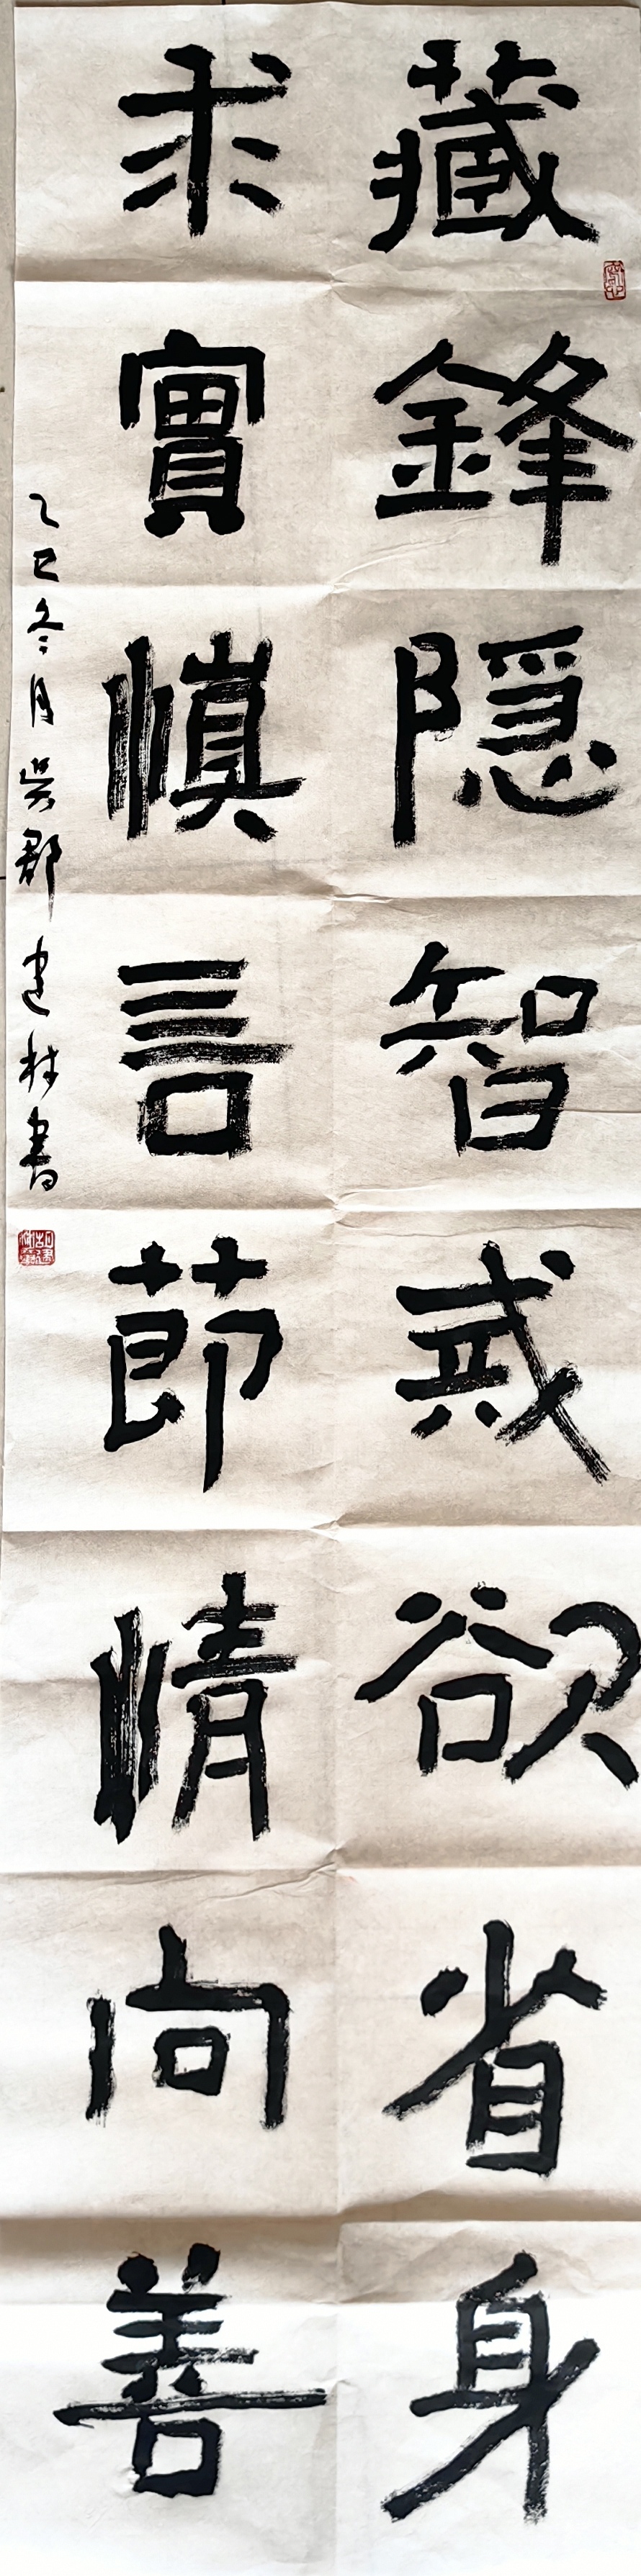 藏鋒隱智戒欲省身
求實慎言節情向善
乙巳冬月吳郡建林書